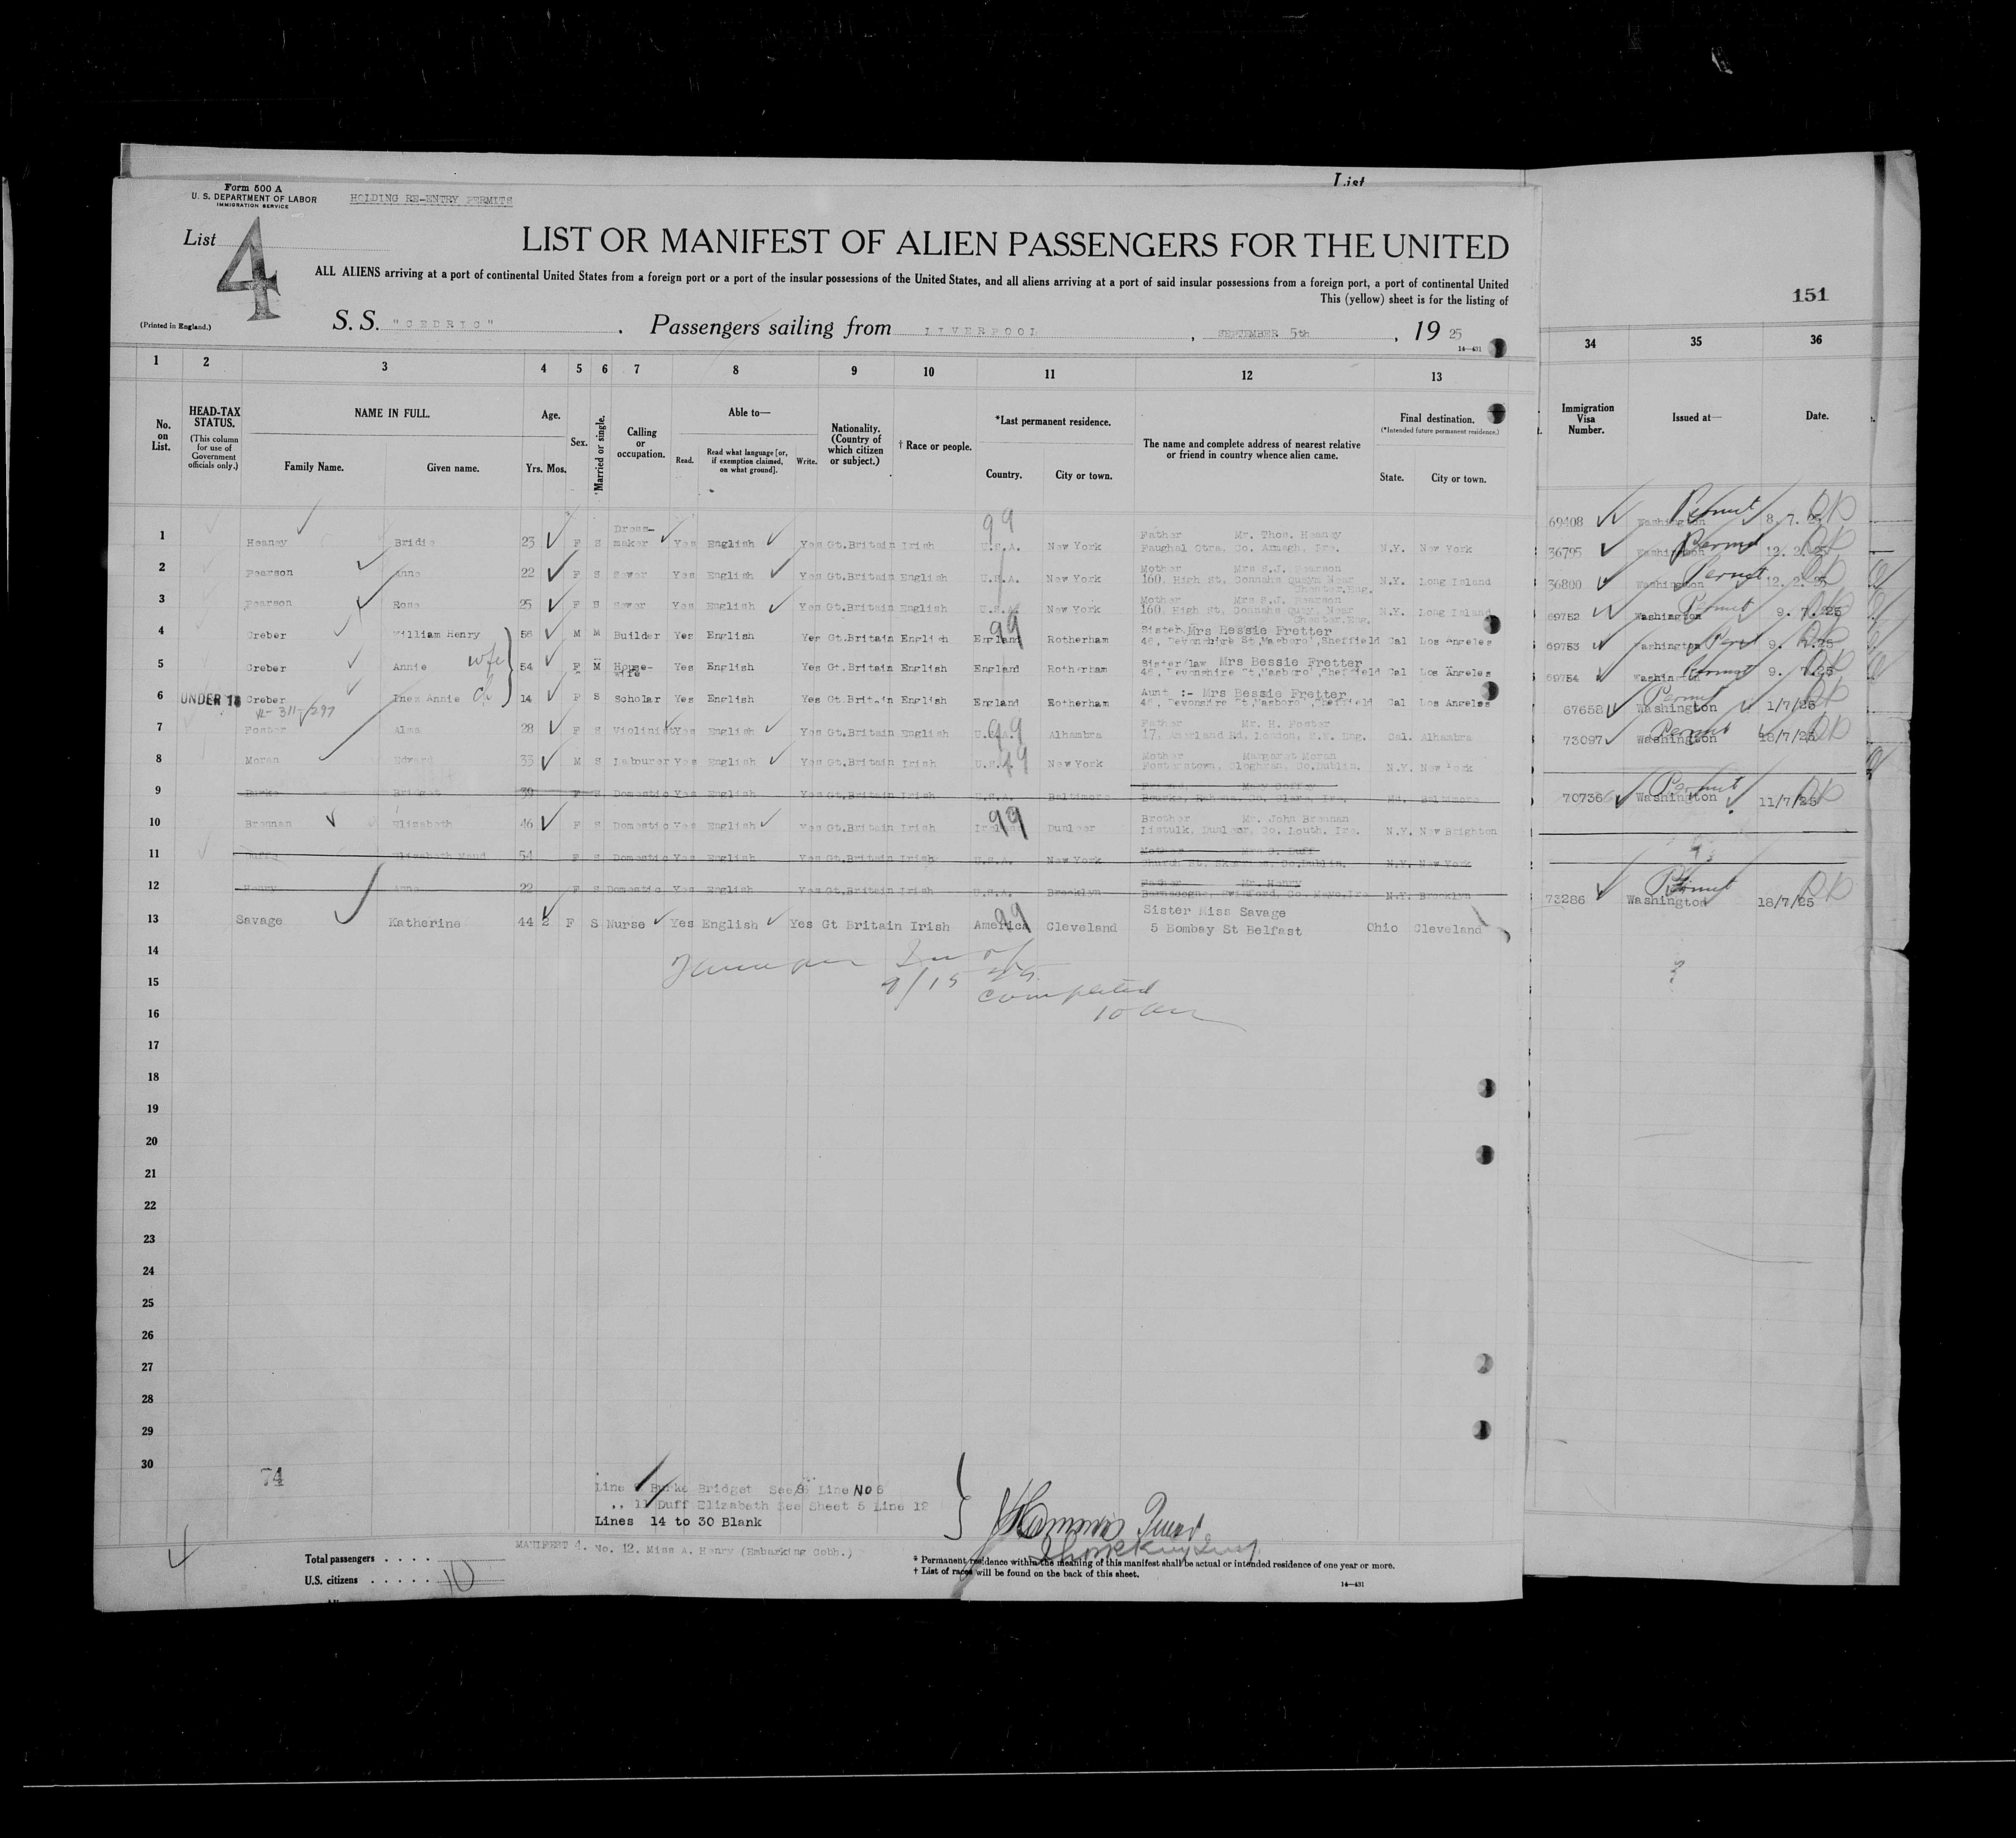 List
Form 500 A
U. S. DEPARTMENT OF LABOR
IMMIGRATION SERVICE
HOLDING RE-ENTRY PERMITS
List 4
LIST OR MANIFEST OF ALIEN PASSENGERS FOR THE UNITED
ALL ALIENS arriving at a port of continental United States from a foreign port or a port of the insular possessions of the United States, and all aliens arriving at a port of said insular possessions from a foreign port, a port of continental United
This (yellow) sheet is for the listing of
151
(Printed in England.)
S. S. "CEDRIC" . Passengers sailing from LIVERPOOL , SEPTEMBER 5th , 19 25
14-431
1 2 3 4 5 6 7 8 9 10 11 12 13 34 35 36
No. on List.
HEAD-TAX STATUS.
(This column for use of Government officials only.)
NAME IN FULL.
Family Name. Given name.
Age.
Yrs. Mos.
Sex.
Married or single.
Calling or occupation.
Able to—
Read. Read what language [or, if exemption claimed, on what ground]. Write.
Nationality. (Country of which citizen or subject.)
† Race or people.
*Last permanent residence.
Country. City or town.
The name and complete address of nearest relative or friend in country whence alien came.
Final destination.
(*Intended future permanent residence.)
State. City or town.
Immigration Visa Number.
Issued at—
Date.
1 Heaney Bridie 23 F S Dress-maker Yes English Yes Gt.Britain Irish U.S.A. New York Father Mr. Thos. Heaney Faughal Otra, Co. Armagh, Ire. N.Y. New York
2 Pearson Anne 22 F S Sewer Yes English Yes Gt.Britain English U.S.A. New York Mother Mrs S.J. Pearson 160, High St, Connahs Quay, Near Chester, Eng. N.Y. Long Island
3 Pearson Rose 25 F S Sewer Yes English Yes Gt.Britain English U.S.A. New York Mother Mrs S.J. Pearson 160, High St, Connahs Quay, Near Chester, Eng. N.Y. Long Island
4 Creber William Henry 56 M M Builder Yes English Yes Gt.Britain English England Rotherham Sister Mrs Bessie Fretter 48, Devonshire St, Masboro', Sheffield Cal Los Angeles
5 Creber Annie wife 54 F M House-wife Yes English Yes Gt.Britain English England Rotherham Sister/law Mrs Bessie Fretter 48, Devonshire St, Masboro', Sheffield Cal Los Angeles
6 UNDER 16 Creber Inez Annie ch 14 F S Scholar Yes English Yes Gt.Britain English England Rotherham Aunt :- Mrs Bessie Fretter 48, Devonshire St, Masboro', Sheffield Cal Los Angeles
7 Foster Alma 28 F S Violinist Yes English Yes Gt.Britain English U.S.A. Alhambra Father Mr. H. Foster 17, Rd. London, Eng. Cal. Alhambra
8 Moran Edward 33 M S Labourer Yes English Yes Gt.Britain Irish U.S.A. New York Mother Margaret Moran Fosterstown, Cloghran, Co.Dublin. N.Y. New York
9 Burke Bridget 39 F S Domestic Yes English Yes Gt.Britain Irish U.S.A. Baltimore Co. Clare, Ire. Md. Baltimore
10 Brennan Elizabeth 46 F S Domestic Yes English Yes Gt.Britain Irish Ireland Dunleer Brother Mr. John Brennan Listulk, Dunleer, Co. Louth, Ire. N.Y. New Brighton
11 Duff Elizabeth Maud 54 F S Domestic Yes English Yes Gt.Britain Irish U.S.A. New York Mother Duff Church St. Skerries, Co.Dublin. N.Y. New York
12 Henry Anne 22 F S Domestic Yes English Yes Gt.Britain Irish U.S.A. Brooklyn Father Mr. Henry Swinford, Co. Mayo, Ire N.Y. Brooklyn
13 Savage Katherine 44 2 F S Nurse Yes English Yes Gt Britain Irish America Cleveland Sister Miss Savage 5 Bombay St Belfast Ohio Cleveland
69408 Washington Permit 8. 7. 25
36795 Washington Permit 12. 2. 25
36800 Washington Permit 12. 2. 25
69752 Washington Permit 9. 7. 25
69753 Washington Permit 9. 7.25
69754 Washington Permit 9. 7.25
67658 Washington Permit 1/7/25
73097 Washington Permit 18/7/25
70736 Washington Permit 11/7/25
73286 Washington Permit 18/7/25
14
9/15
15
completed
16
17
18
19
20
21
22
23
24
25
26
27
28
29
30
74
Line Burke Bridget See Line No 6
,, 11 Duff Elizabeth See Sheet 5 Line 12
Lines 14 to 30 Blank
MANIFEST 4. No. 12. Miss A. Henry (Embarking Cobh.)
Total passengers . . . .
U.S. citizens . . . . . 10
* Permanent residence within the meaning of this manifest shall be actual or intended residence of one year or more.
† List of races will be found on the back of this sheet.
14-431